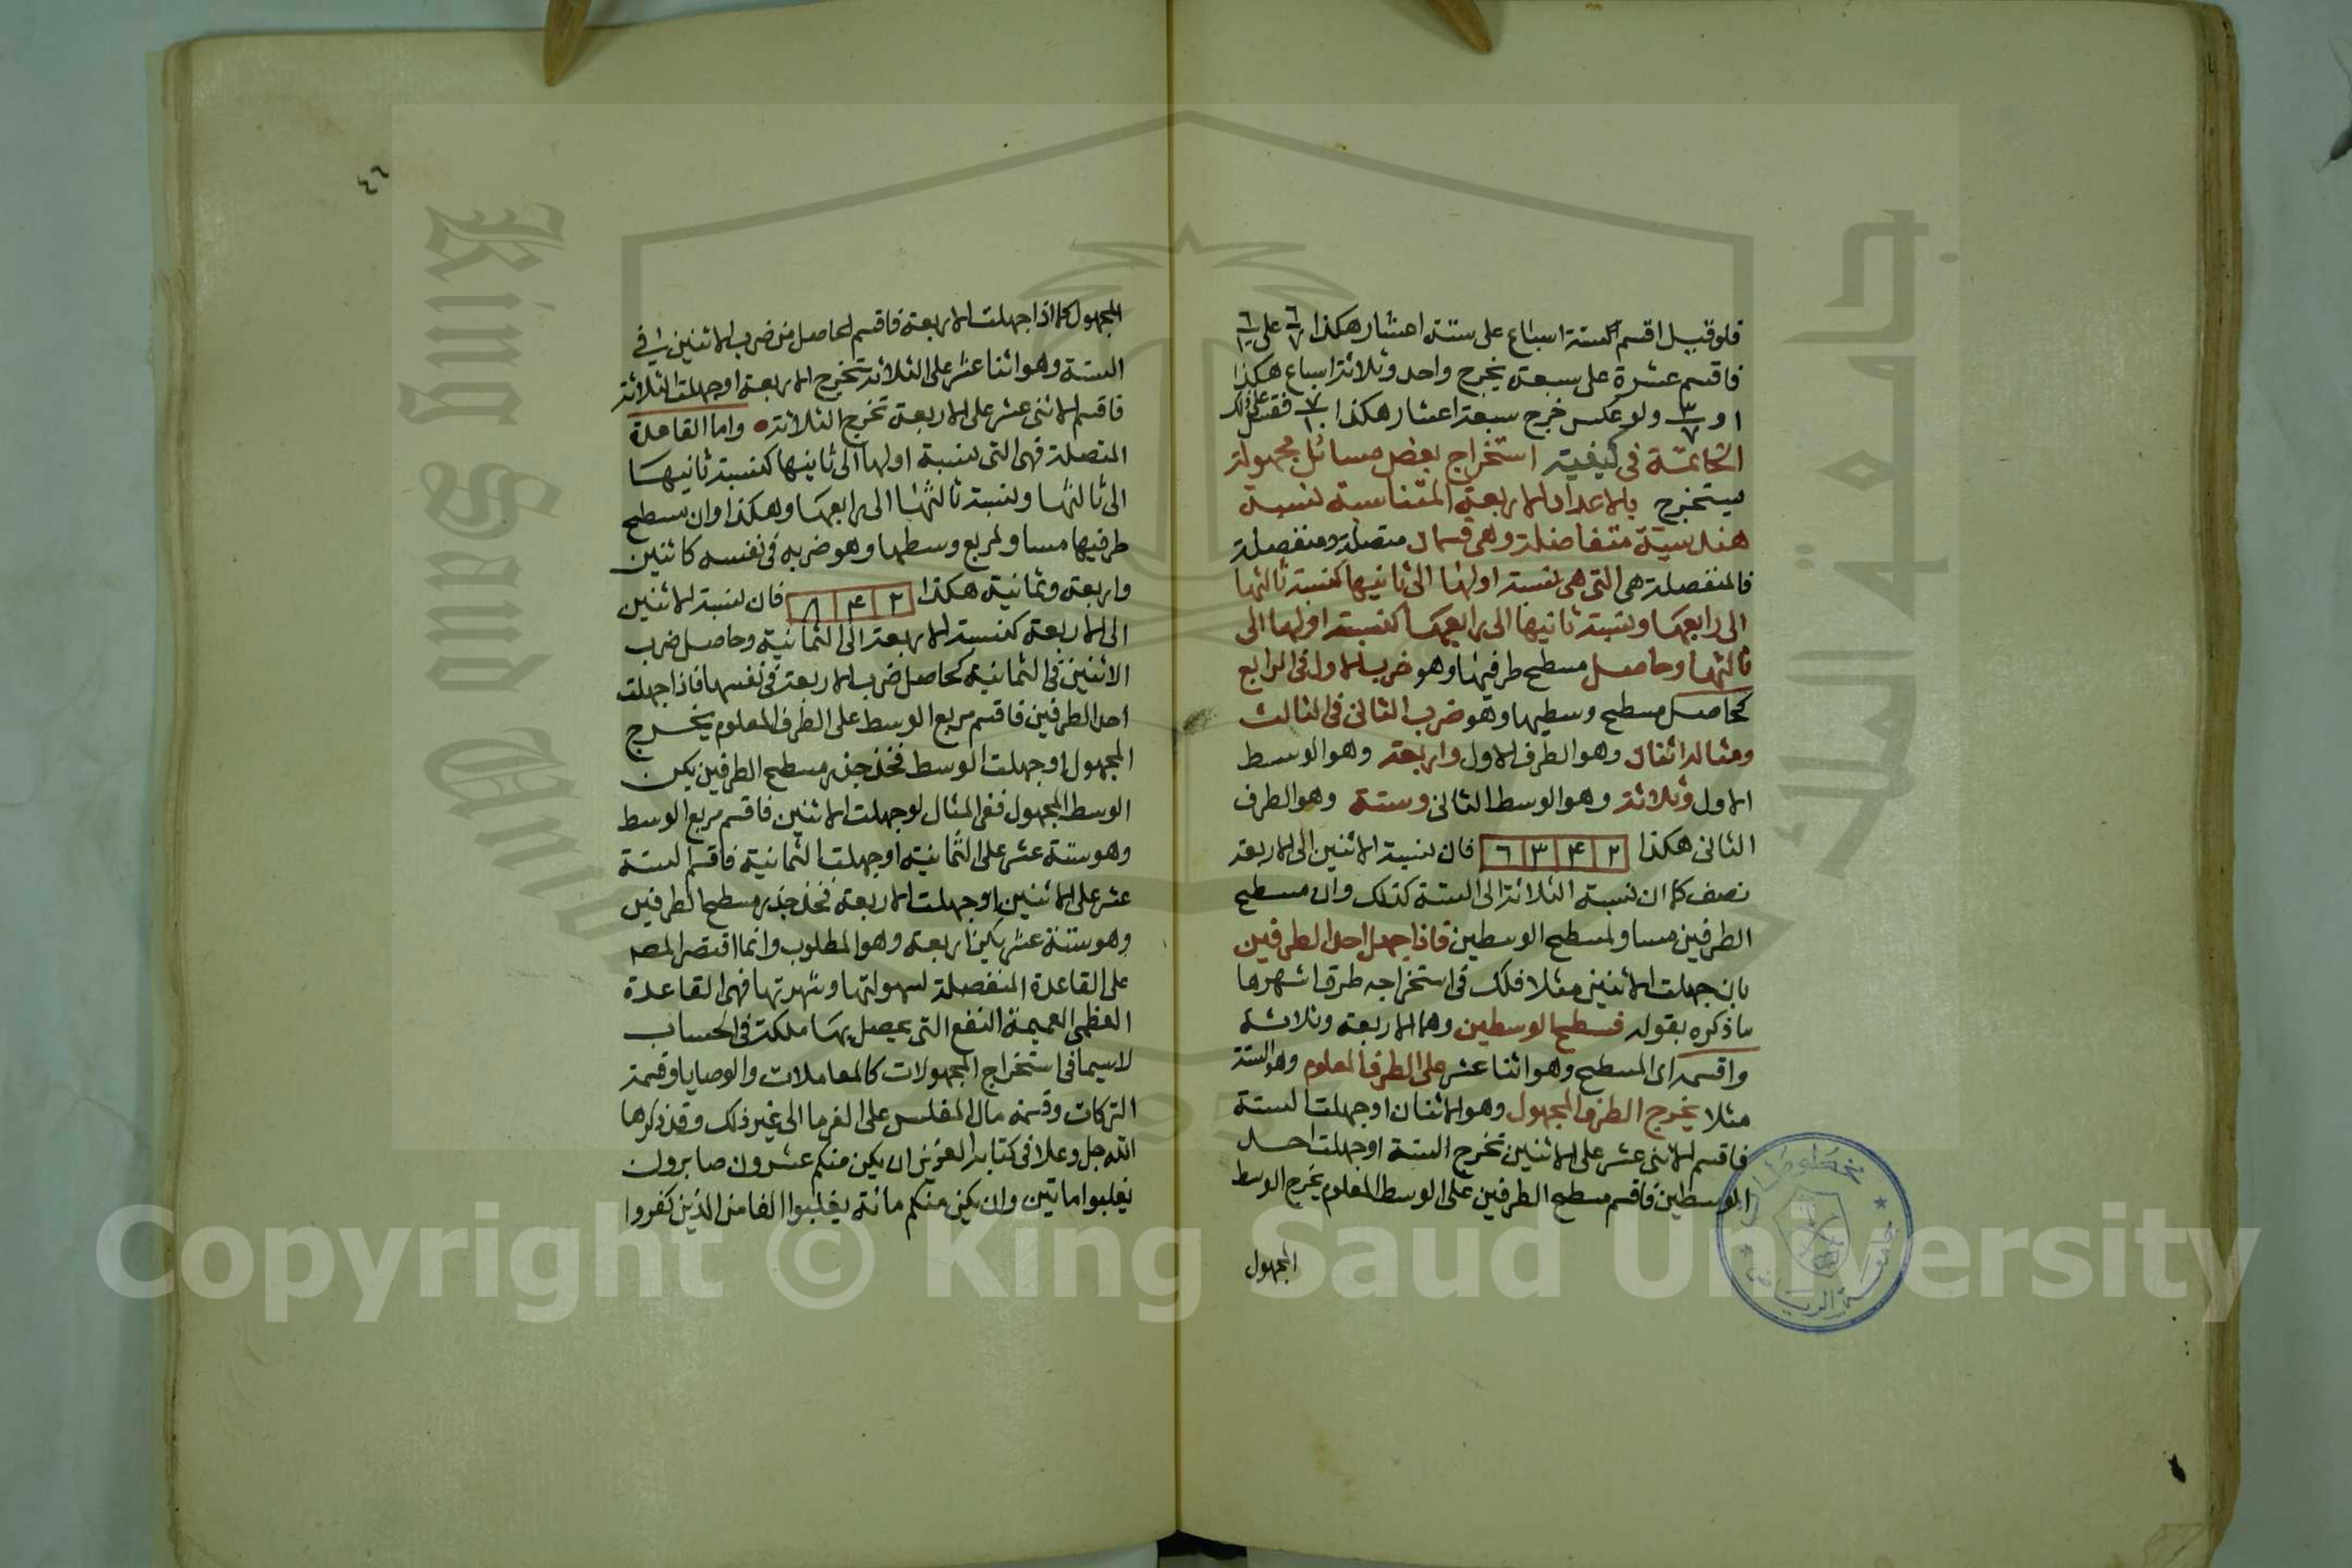 فلو قيل اقسم الستة اسباع على ستة اعشار هكذا ٦/٧ على ٦/١٠
فاقسم عشرة على سبعة يخرج واحد وثلاثة اسباع هكذا
١ و ٣/٧ ولو عكس خرج سبعة اعشار هكذا ٧/١٠ فقس على ذلك
الخاتمة في كيفية استخراج بعض مسائل مجهولة
يستخرج بالاعداد الاربعة المتناسبة نسبة
هندسية متفاضلة وهي قسمان متصلة ومنفصلة
فالمنفصلة هي التي هي نسبة اولها الى ثانيها كنسبة ثالثها
الى رابعها ونسبة ثانيها الى رابعها كنسبة اولها الى
ثالثها وحاصل مسطح طرفيها وهو ضرب الاول في الرابع
كحاصل مسطح وسطيها وهو ضرب الثاني في الثالث
ومثاله اثنان وهو الطرف الاول واربعة وهو الوسط
الاول وثلاثة وهو الوسط الثاني وستة وهو الطرف
الثاني هكذا ٢ ۴ ٣ ٦ فان نسبة الاثنين الى الاربعة
نصف كما ان نسبة الثلاثة الى الستة كذلك وان مسطح
الطرفين مساو لمسطح الوسطين فاذا جهل احد الطرفين
بان جهلت الاثنين مثلا فلك في استخراجه طرق اشهرها
ما ذكره بقوله فسطح الوسطين وهما الاربعة وثلاثة
واقسمه اى المسطح وهو اثنا عشر على الطرف المعلوم وهو الستة
مثلا يخرج الطرف المجهول وهو الاثنان او جهلت الستة
فاقسم الاثنى عشر على الاثنين تخرج الستة او جهلت احد
الوسطين فاقسم مسطح الطرفين على الوسط المعلوم يخرج الوسط
المجهول
٤٦
المجهول كما اذا جهلت الاربعة فاقسم الحاصل من ضرب الاثنين في
الستة وهو اثنا عشر على الثلاثة تخرج الاربعة او جهلت الثلاثة
فاقسم الاثنى عشر على الاربعة تخرج الثلاثة واما القاعدة
المتصلة فهي التي نسبة اولها الى ثانيها كنسبة ثانيها
الى ثالثها ونسبة ثالثها الى رابعها وهكذا وان مسطح
طرفيها مساو لمربع وسطها وهو ضربه في نفسه كاثنين
واربعة وثمانية هكذا ٢ ۴ ٨ فان نسبة الاثنين
الى الاربعة كنسبة الاربعة الى الثمانية وحاصل ضرب
الاثنين في الثمانية كحاصل ضرب الاربعة في نفسها فاذا جهلت
احد الطرفين فاقسم مربع الوسط على الطرف المعلوم يخرج
المجهول او جهلت الوسط فخذ جذر مسطح الطرفين يكن
الوسط المجهول ففي المثال لو جهلت الاثنين فاقسم مربع الوسط
وهو ستة عشر على الثمانية او جهلت الثمانية فاقسم الستة
عشر على الاثنين او جهلت الاربعة فخذ جذر مسطح الطرفين
وهو ستة عشر يكن اربعة وهو المطلوب وانما اقتصر المصـ
على القاعدة المنفصلة لسهولتها وشهرتها فهي القاعدة
العظمى العميمة النفع التي يحصل بها ملكة في الحساب
لاسيما في استخراج المجهولات كالمعاملات والوصايا وقسمة
التركات وقسمة مال المفلس على الغرما الى غير ذلك وقد ذكرها
الله جل وعلا في كتابه العزيز ان يكن منكم عشرون صابرون
يغلبوا ماتين وان يكن منكم مائة يغلبوا الفا من الذين كفروا
جامعة الرياض
جامعة الملك
King Saud Un
Copyright © King Saud University